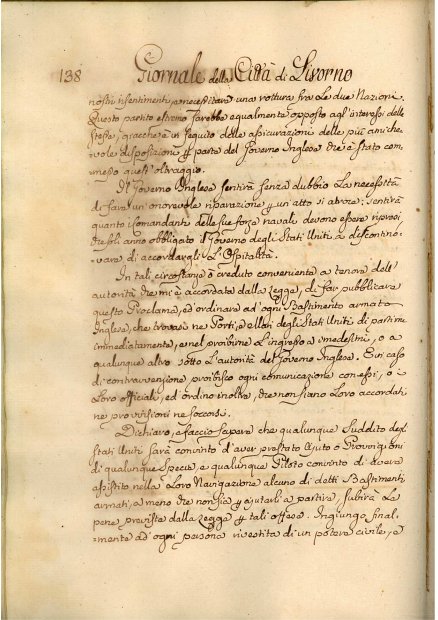 138 Giornale della Città di Livorno
nostri risentimenti, a necessitare una rottura fra le due Nazioni.
Questo partito estremo sarebbe equalmente opposto agl'interessi delle
stesse, giacchè è in seguito delle assicurazioni delle più amiche
vole disposizioni p parte del Governo Inglese che è stato com
messo quest'oltraggio.
Il Governo Inglese sentirà senza dubbio la necessità
di fare un'onorevole riparazione p un'atto sì atroce: sentirà
quanto i Comandanti delle sue forze navali devono essere ripresi
che soli anno obbligato il Governo degli Stati Uniti a discontino-
vare di accordargli l'Ospitalità.
In tali circostanze ò creduto conveniente a tenore dell'
autorità che mi è accordata dalla Legge, di far pubblicare
questo Proclama, ed ordinare ad'ogni Bastimento armato
Inglese, che trovasi ne Porti, e Mari degli Stati Uniti di partirne
immediatamente, e nel proibirne l'ingresso a' medesimi, o a
qualunque altro sotto l'autorità del Governo Inglese. E in caso
di contravvenzione proibisco ogni comunicazione con essi, o i
Loro officiali, ed ordino inoltre, che non siano Loro accordati
ne provvisioni ne soccorsi.
Dichiaro, e faccio sapere che qualunque Suddito degl
Stati Uniti sarà convinto d'aver prestato Ajuto o Provvigioni
di qualunque Specie, e qualunque Piloto convinto di avere
assistito nella Loro Navigazione alcuno di detti Bastimenti
armati, a meno che non sia p ajutarli a partire, subirà le
pene previste dalla Legge p tali offese. Ingiungo final-
mente ad ogni persona rivestita di un potere civile, e